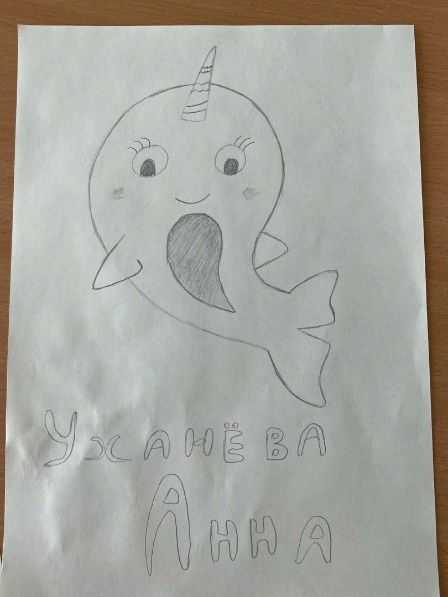 Уханёва
Анна